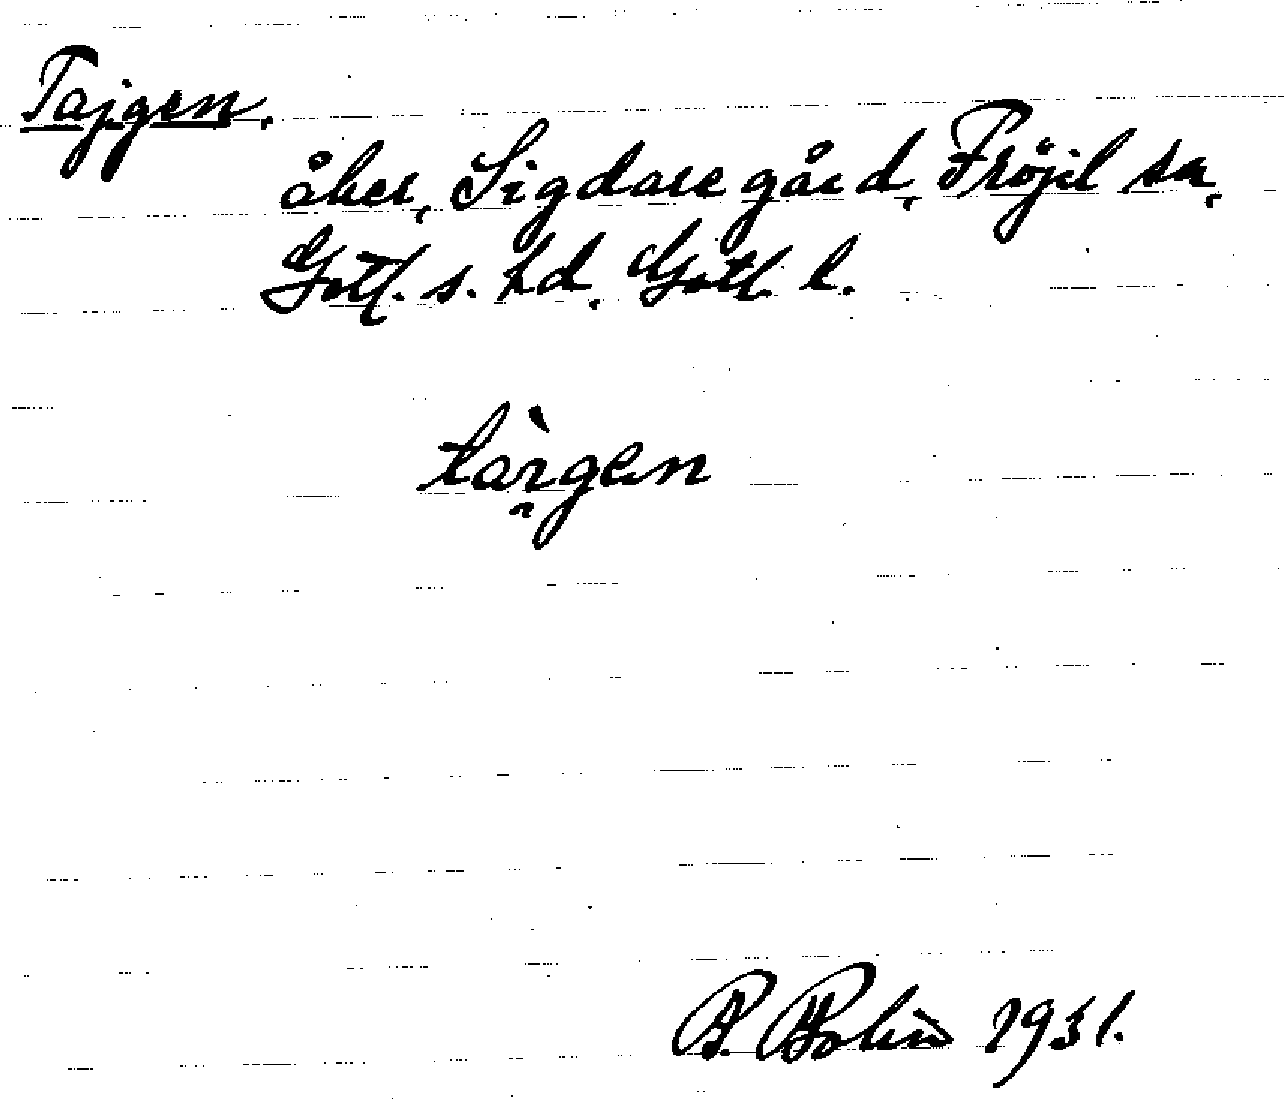 Tajgen.
åker, Sigdare gård, Fröjel sn,
Gotl. s. hd, Gotl. l.
tàı̯gen
P. Bohin 1931.